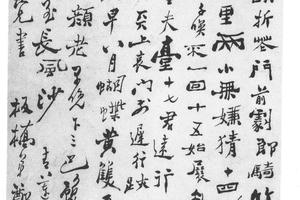 折花門前劇郎騎竹
里兩小無嫌猜十四
喚不一回十五始展
夫臺十七君遠行
上哀門前遲行跡
早八月蝴蝶黃雙
顏老早晚下三巴預
至長風沙 青蓮
兄書 板橋鄭